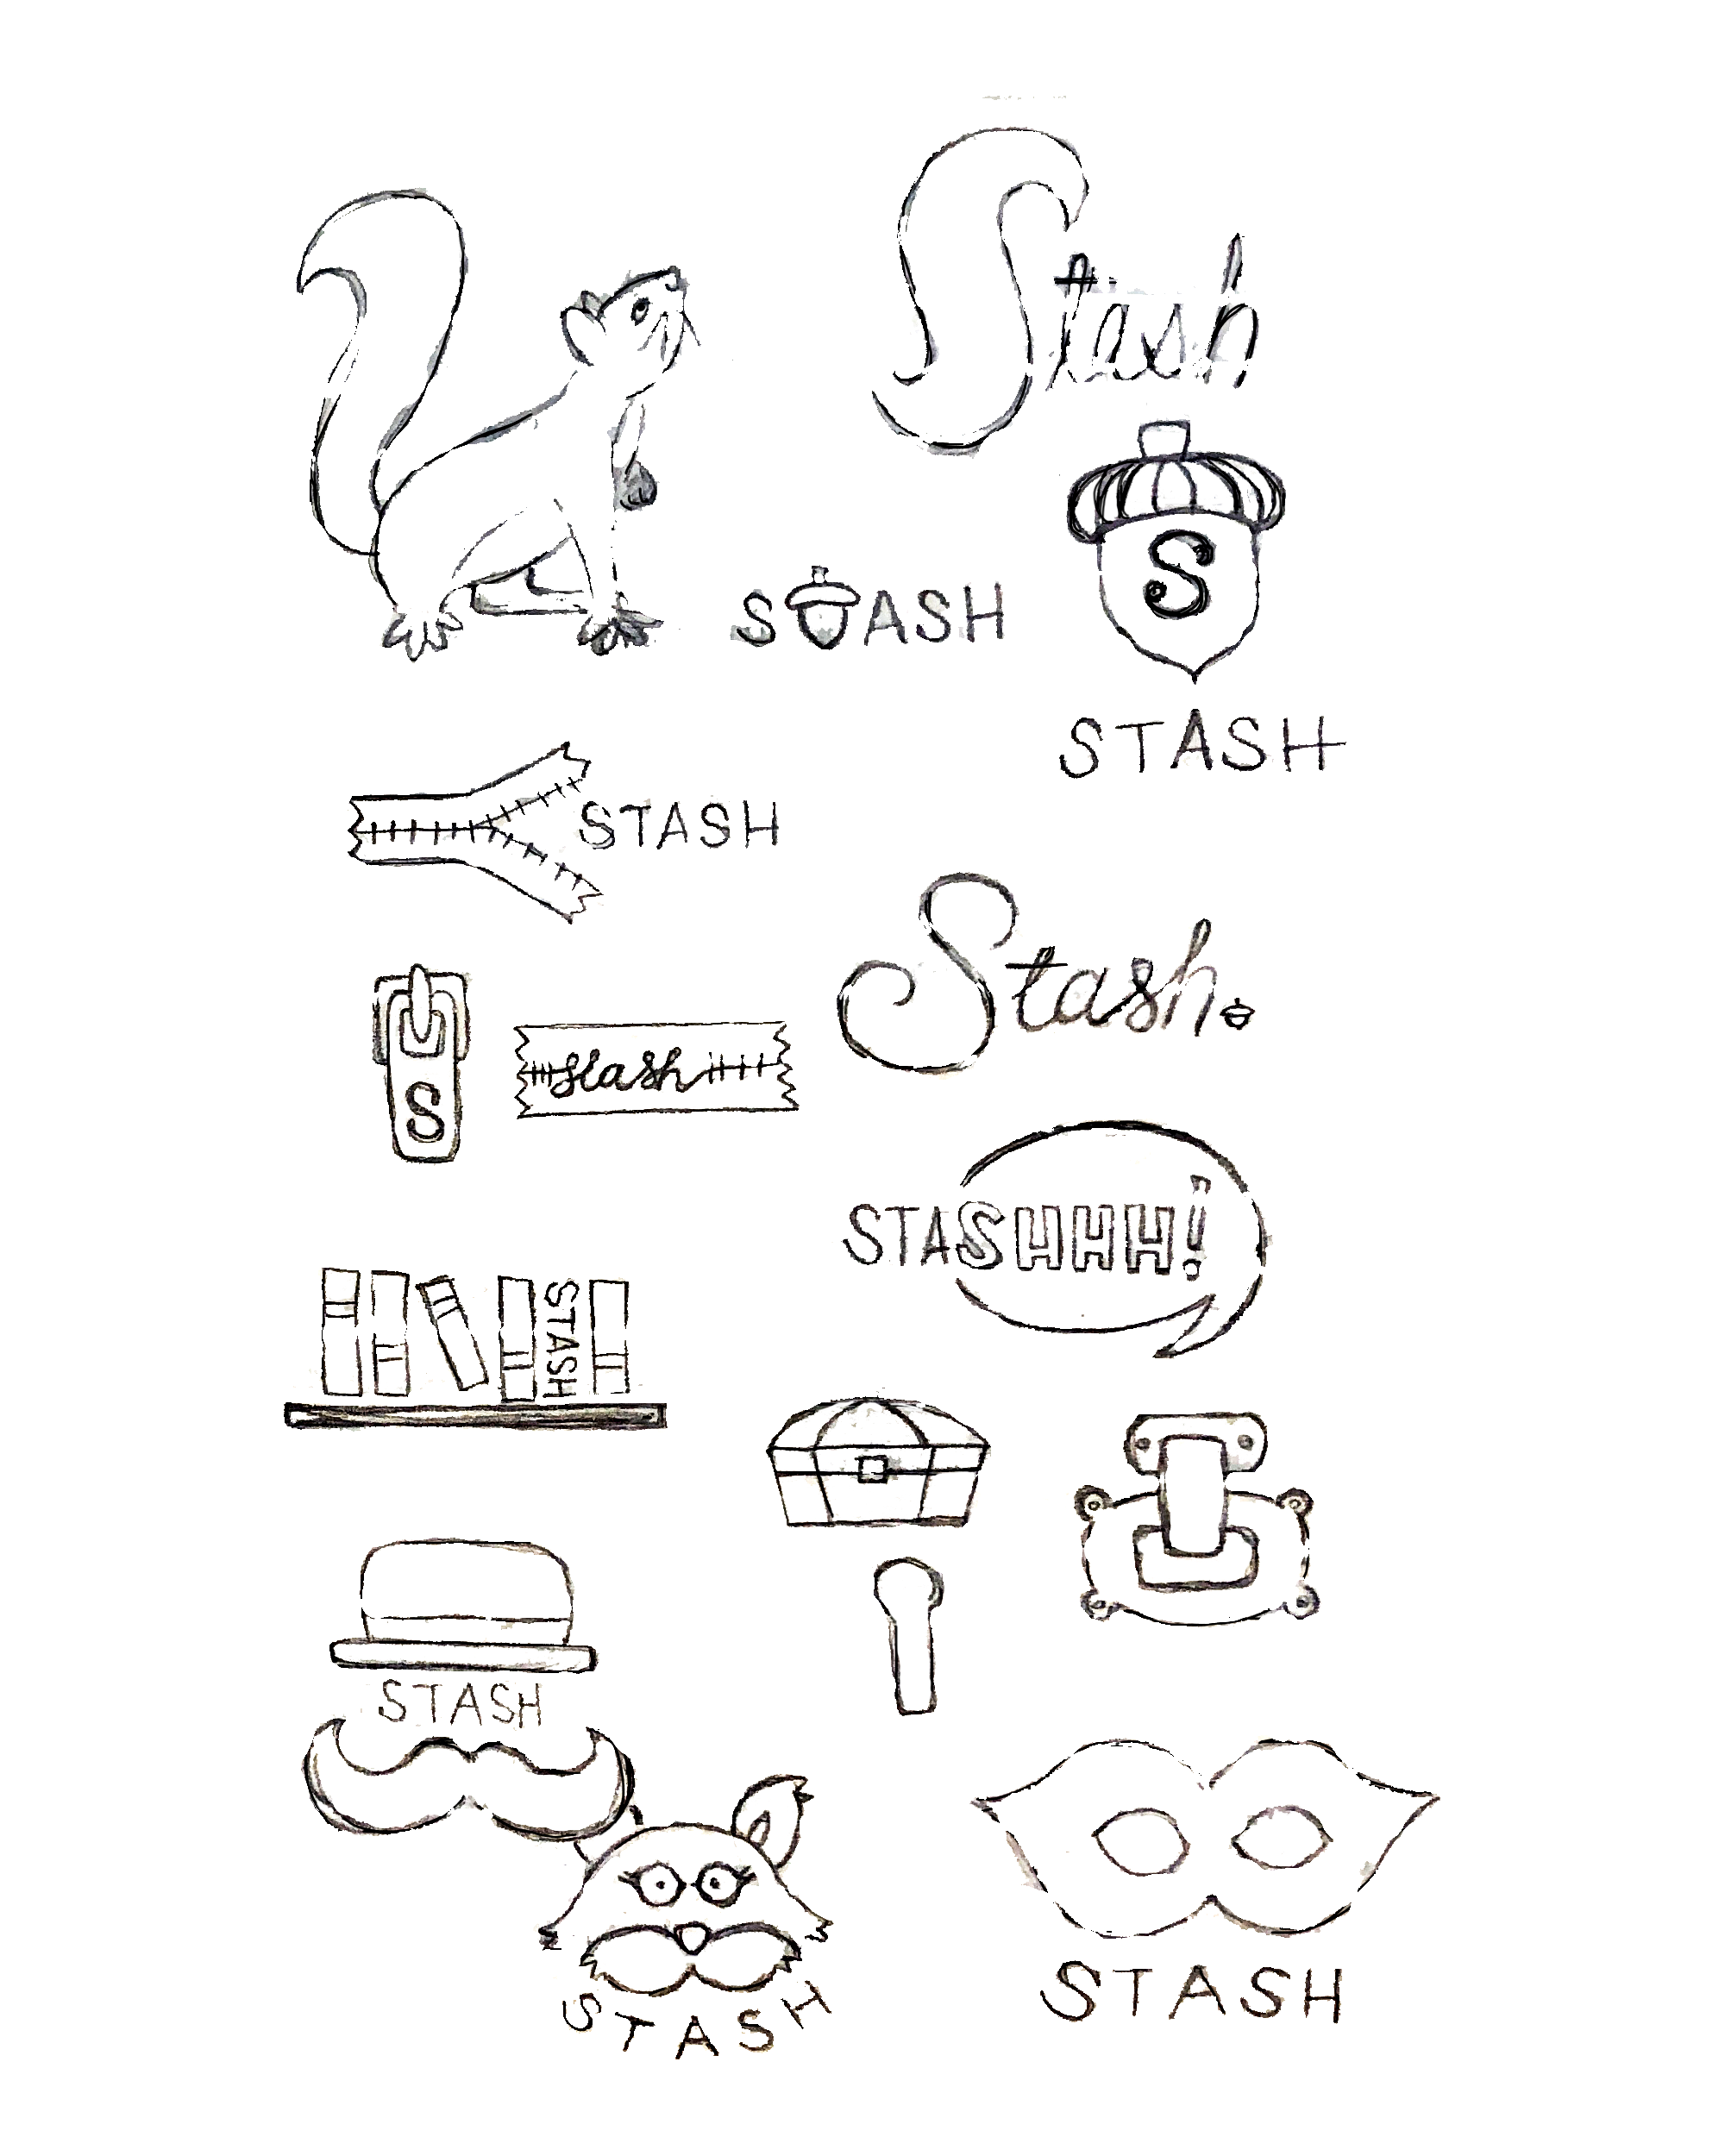 Stash
S
S ASH
STASH
STASH
Stash.
S
stash
STASHHH!
STASH
STASH
STASH
STASH